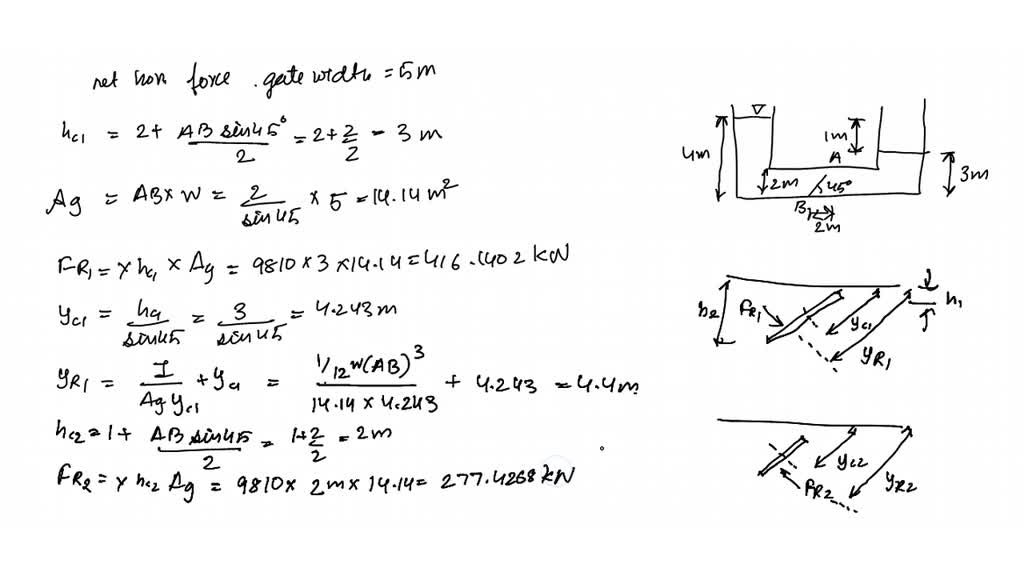 net hori force . gate width = 5m
hc1 = 2 + AB sin45° / 2 = 2 + 2/2 = 3 m
Ag = AB × W = 2 / sin45 × 5 = 14.14 m²
FR1 = γ hc1 × Ag = 9810 × 3 × 14.14 = 416.1402 kN
yc1 = hc1 / sin45 = 3 / sin45 = 4.243 m
yR1 = I / Ag yc1 + yc1 = 1/12 w(AB)³ / 14.14 × 4.243 + 4.243 = 4.4 m
hc2 = 1 + AB sin45 / 2 = 1+2/2 = 2m
FR2 = γ hc2 Ag = 9810 × 2m × 14.14 = 277.4268 kN
4m
1m
A
2m
45°
3m
B
2m
h2
FR1
yc1
yR1
h1
yc2
FR2
yR2